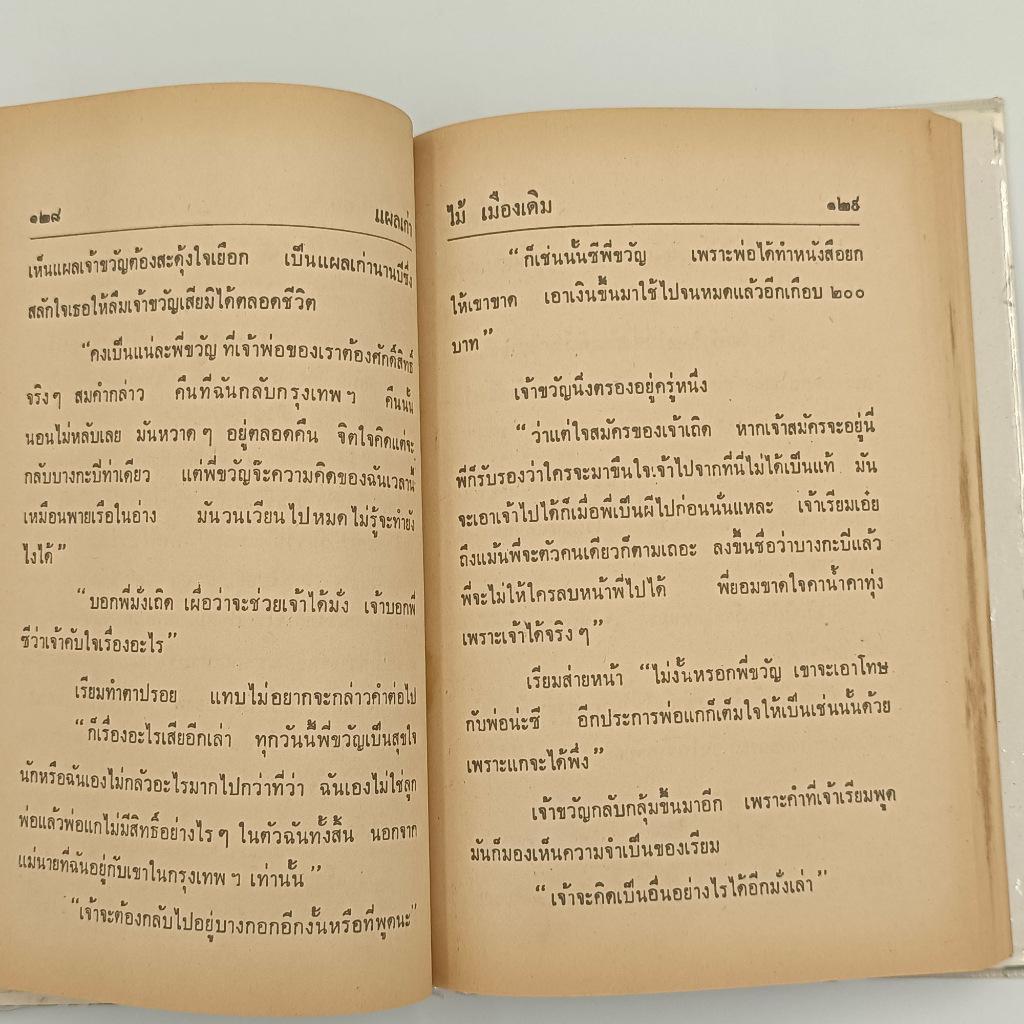 ๑๒๘ แผลเก่า
เห็นแผลเจ้าขวัญต้องสะดุ้งใจเยือก เป็นแผลเก่านานปีซึ่ง
สลักใจเธอให้ลืมเจ้าขวัญเสียมิได้ตลอดชีวิต
“คงเป็นแน่ละพี่ขวัญ ที่เจ้าพ่อของเราต้องศักดิ์สิทธิ์
จริงๆ สมคำกล่าว คืนที่ฉันกลับกรุงเทพฯ คืนนั้น
นอนไม่หลับเลย มันหวาดๆ อยู่ตลอดคืน จิตใจคิดแต่จะ
กลับบางกะบี่ท่าเดียว แต่พี่ขวัญจ๊ะความคิดของฉันเวลานี้
เหมือนพายเรือในอ่าง มันวนเวียนไปหมดไม่รู้จะทำยัง
ไงได้”
“บอกพี่มั่งเถิด เผื่อว่าจะช่วยเจ้าได้มั่ง เจ้าบอกพี่
ซีว่าเจ้าคับใจเรื่องอะไร”
เรียมทำตาปรอย แทบไม่อยากจะกล่าวคำต่อไป
“ก็เรื่องอะไรเสียอีกเล่า ทุกวันนี้พี่ขวัญเป็นสุขใจ
นักหรือฉันเองไม่กลัวอะไรมากไปกว่าที่ว่า ฉันเองไม่ใช่ลูก
พ่อแล้วพ่อแกไม่มีสิทธิ์อย่างไรๆ ในตัวฉันทั้งสิ้น นอกจาก
แม่นายที่ฉันอยู่กับเขาในกรุงเทพฯ เท่านั้น”
“เจ้าจะต้องกลับไปอยู่บางกอกอีกงั้นหรือที่พูดนะ”
ไม้ เมืองเดิม ๑๒๙
“ก็เช่นนั้นซีพี่ขวัญ เพราะพ่อได้ทำหนังสือยก
ให้เขาขาด เอาเงินขึ้นมาใช้ไปจนหมดแล้วอีกเกือบ ๒๐๐
บาท”
เจ้าขวัญนิ่งตรองอยู่ครู่หนึ่ง
“ว่าแต่ใจสมัครของเจ้าเถิด หากเจ้าสมัครจะอยู่นี่
พี่ก็รับรองว่าใครจะมาขืนใจเจ้าไปจากที่นี่ไม่ได้เป็นแท้ มัน
จะเอาเจ้าไปได้ก็เมื่อพี่เป็นผีไปก่อนนั่นแหละ เจ้าเรียมเอ๋ย
ถึงแม้นพี่จะตัวคนเดียวก็ตามเถอะ ลงขึ้นชื่อว่าบางกะบี่แล้ว
พี่จะไม่ให้ใครลบหน้าพี่ไปได้ พี่ยอมขาดใจคาน้ำคาทุ่ง
เพราะเจ้าได้จริงๆ”
เรียมส่ายหน้า “ไม่งั้นหรอกพี่ขวัญ เขาจะเอาโทษ
กับพ่อน่ะซี อีกประการพ่อแกก็เต็มใจให้เป็นเช่นนั้นด้วย
เพราะแกจะได้พึ่ง”
เจ้าขวัญกลับกลุ้มขึ้นมาอีก เพราะคำที่เจ้าเรียมพูด
มันก็มองเห็นความจำเป็นของเรียม
“เจ้าจะคิดเป็นอื่นอย่างไรได้อีกมั่งเล่า”